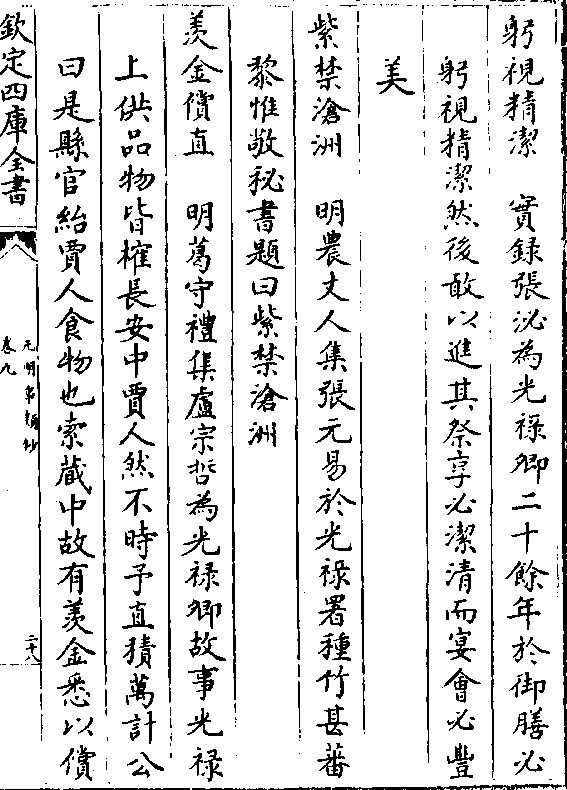 躬視精潔　實録張泌為光禄卿二十餘年於御膳必
躬視精潔然後敢以進其祭享必潔清而宴會必豐
美
紫禁滄洲　明農丈人集張元易於光禄署種竹甚蕃
黎惟敬秘書題曰紫禁滄洲
羨金償直　明葛守禮集盧宗哲為光禄卿故事光禄
上供品物皆榷長安中賈人然不時予直積萬計公
曰是縣官紿賈人食物也索藏中故有羨金悉以償
欽定四庫全書
元明事類鈔
卷九
二十八